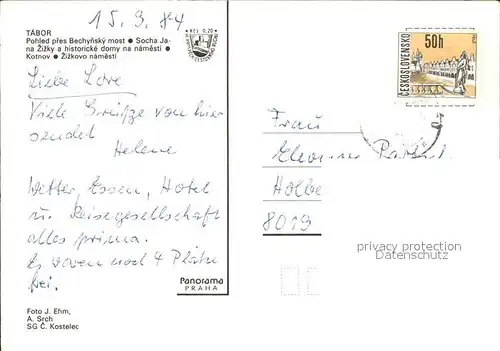 15. 9. 84
TÁBOR
Pohled přes Bechyňský most ● Socha Ja-
na Žižky a historické domy na náměstí ●
Kotnov. ● Žižkovo náměstí
Kčs 0,20
Liebe Lore
Viele Grüße von hier
sendet
Helene
Wetter, Essen, Hotel
u. Reisegesellschaft
alles prima.
Es waren noch 4 Plätze
frei.
Panorama
PRAHA
Foto J. Ehm,
A. Srch
SG Č. Kostelec
ČESKOSLOVENSKO
50h
Frau
Holbe
8019
privacy protection
Datenschutz